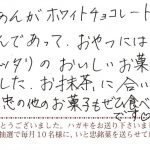 あんがホワイトチョコレート
んであって、おやつには
ッタリのおいしいお菓
した。お抹茶に合い
忠の他のお菓子もぜひ食べ
です
とうございました。ハガキをお送り下さいまし
抽選で毎月10名様に、いと忠銘菓を送らせて